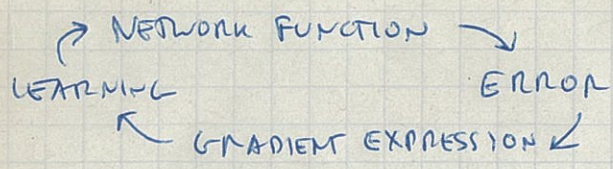 NETWORK FUNCTION
LEARNING
ERROR
GRADIENT EXPRESSION